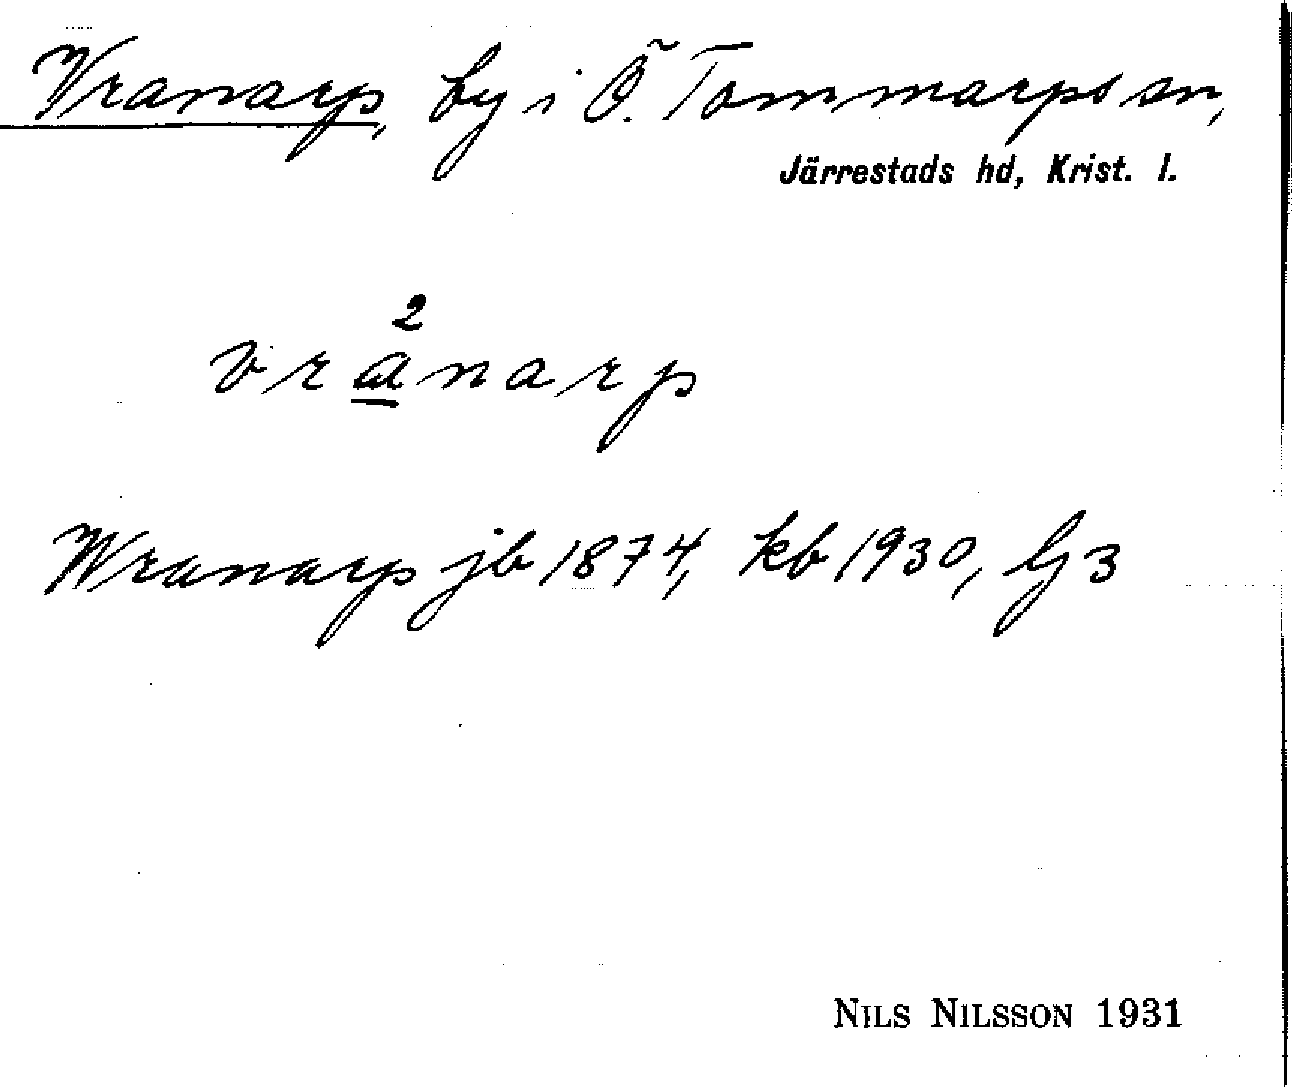 Vranarp, by i Ö. Tommarps sn,
Järrestads hd, Krist. l.
2
vranarp
Wranarp jb 1874, kb 1930, Gj 3
NILS NILSSON 1931